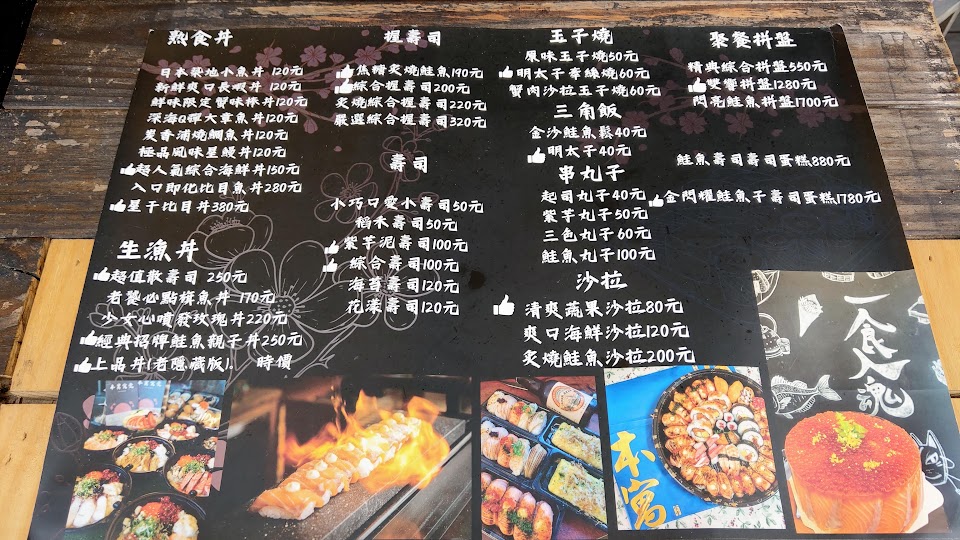 熟食丼
日本築地小魚丼 120元
新鮮爽口長蝦丼 120元
鮮味限定蟹味棒丼120元
深海Q彈大章魚丼120元
炭香蒲燒鯛魚丼120元
極品風味星鰻丼120元
超人氣綜合海鮮丼150元
入口即化比目魚丼280元
星干比目丼380元
生漁丼
超值散壽司 250元
老饕必點旗魚丼 170元
少女心噴發玫瑰丼220元
經典招牌鮭魚親子丼250元
上品丼(老隱藏版). 時價
握壽司
焦糖炙燒鮭魚190元
綜合握壽司200元
炙燒綜合握壽司220元
嚴選綜合握壽司320元
壽司
小巧口愛小壽司50元
稻禾壽司50元
紫芋泥壽司100元
綜合壽司100元
海苔120元
花漾壽司120元
玉子燒
原味玉子燒50元
明太子牽絲燒60元
蟹肉沙拉玉子燒60元
三角飯
金沙鮭魚鬆40元
明太子40元
串丸子
起司丸子40元
紫芋丸子50元
三色丸子60元
鮭魚丸子100元
沙拉
清爽蔬果沙拉80元
爽口海鮮沙拉120元
炙燒鮭魚沙拉200元
聚餐拼盤
精典綜合拼盤550元
雙響拼盤1280元
閃亮鮭魚拼盤1700元
鮭魚壽司壽司蛋糕880元
金閃耀鮭魚子壽司蛋糕1780元
一食入魂
本窩